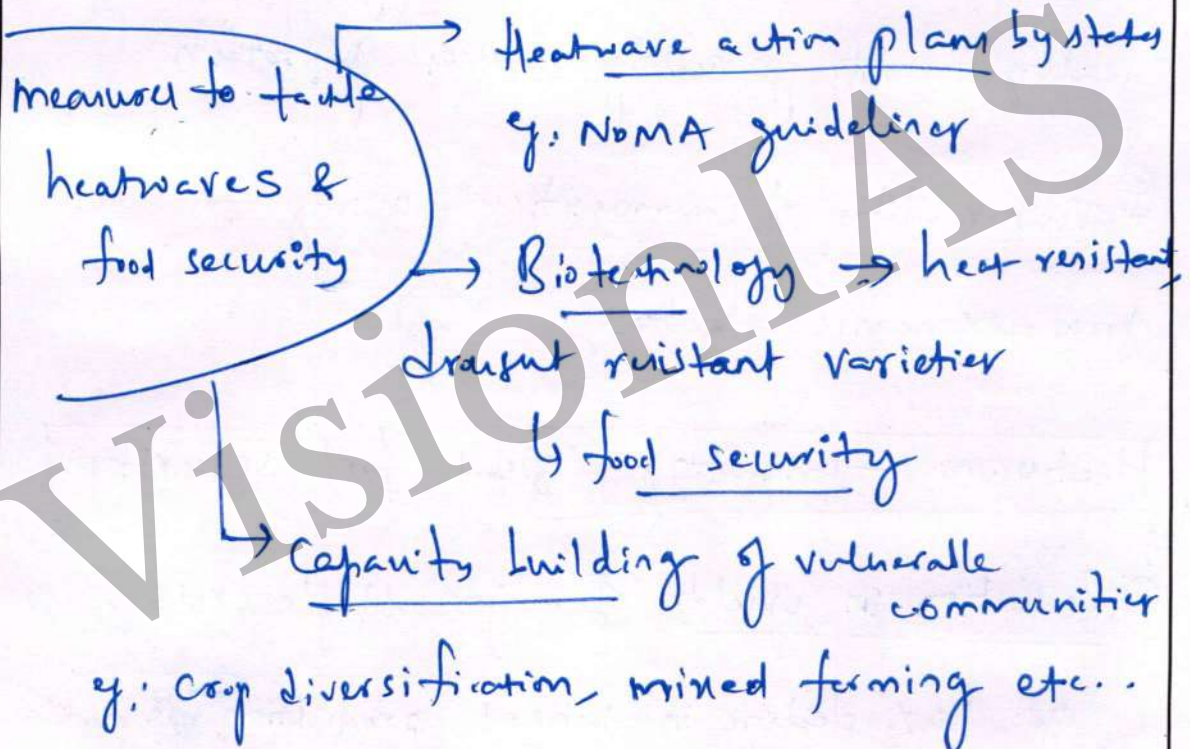 measures to tackle
heatwaves &
food security
→ Heatwave action plans by states
eg: NDMA guidelines
→ Biotechnology → heat resistant,
drought resistant varieties
↳ food security
→ Capacity building of vulnerable
communities
eg: crop diversification, mixed farming etc..
VisionIAS